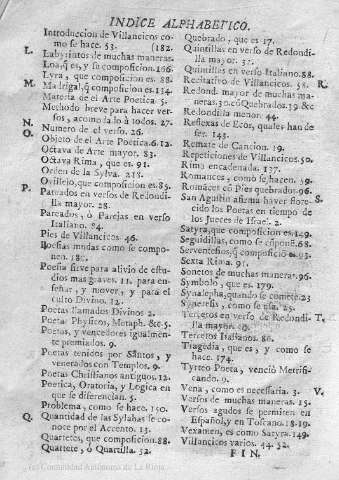 INDICE ALPHABETICO.
Introduccion de Villancicos co-
mo se hace. 53. (182.
L. Labyrintos de muchas maneras.
Loa, q̃ es, y su composicion.166.
Lyra, que composicion es. 88.
M. Madrigal, q̃ composicion es.114.
Materia de el Arte Poetica. 5.
Methodo breve para hacer ver-
sos, acomodalo à todos. 27.
N. Numero de el verso. 26.
O. Objeto de el Arte Poetica.6.12.
Octava de Arte mayor. 83.
Octava Rima, que es. 91.
Orden de la Sylva. 218.
Ovillejo, que composicion es.85.
P. Pareados en versos de Redondi-
lla mayor. 28.
Pareados, ò Parejas en verso
Italiano. 84.
Pies de Villancicos. 46.
Poesias mudas como se compo-
nen. 180.
Poesia sirve para alivio de estu-
dios mas graves. 11. para en-
señar, y mover, y para el
culto Divino. 12.
Poetas llamados Divinos 2.
Poetas Physicos, Metaph. &c 5.
Poetas, y vencedores igualmen-
te premiados. 9.
Poetas tenidos por Santos, y
venerados con Templos. 9.
Poetas Christianos antiguos. 12.
Poetica, Oratoria, y Logica en
que se diferencian. 5.
Problema, como se hace. 150.
Q. Quantidad de las Sylabas se co-
noce por el Accento. 13.
Quartetos, que composicion.88.
Quartete, ò Quartilla. 52.
Quebrado, que es 17.
Quintillas en verso de Redondi-
lla mayor. 32.
Quintillas en verso Italiano.88.
R. Recitativo de Villancicos. 58.
Redond. mayor de muchas ma-
neras.30.cõ Quebrados.39 &c
Redondilla menor. 44.
Reflexas de Ecos, quales han de
ser. 143.
Remate de Cancion. 19.
Repeticiones de Villancicos.50.
Rima encadenada. 137.
Romances, como se hacen. 59.
Romãces cõ Pies quebrados.96.
S. San Agustin afirma haver flore-
cido los Poetas en tiempo de
los Jueces de Israel. 2.
Satyra, que composicion es.149.
Seguidillas, como se cõponẽ.68.
Serventesios, q̃ composicion.93.
Sexta Rima. 91.
Sonetos de muchas maneras. 96.
Symbolo, que es. 179.
Synalepha, quando se comete.23
Syneresis, como se usa. 25.
T. Tercetos en verso de Redondi-
lla mayor. 29.
Tercetos Italianos. 86.
Tragedia, que es, y como se
hace. 174.
Tyrteo Poeta, venciò Metrifi-
cando. 9.
V. Vena, como es necessaria. 3.
Versos de muchas maneras. 15.
Versos agudos se permiten en
Español, y en Toscano. 18.19.
Vexamen, es como Satyra. 149.
Villancicos varios. 44. 52.
FIN.
(c) Comunidad Autónoma de La Rioja